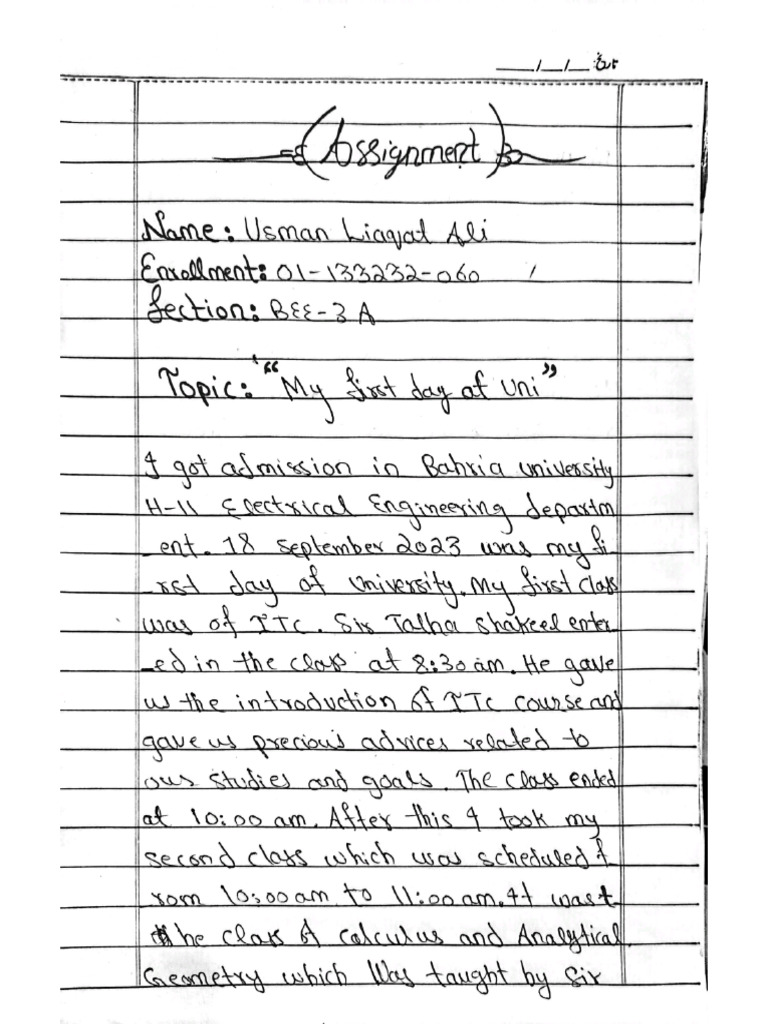 ___/__/___ تاریخ
(Assignment)
Name: Usman Liaqat Ali
Enrollment: 01-133232-060
Section: BEE-3 A
Topic: "My first day at Uni"
I got admission in Bahria university
H-11 Electrical Engineering departm
_ent. 18 September 2023 was my fi
_rst day of university. My first class
was of ITC. Sir Talha Shakeel enter
_ed in the class at 8:30 am. He gave
us the introduction of ITC course and
gave us precious advices related to
our studies and goals. The class ended
at 10:00 am. After this I took my
second class which was scheduled f
rom 10:00 am to 11:00 am. It was t
he class of calculus and Analytical
Geometry which Was taught by Sir